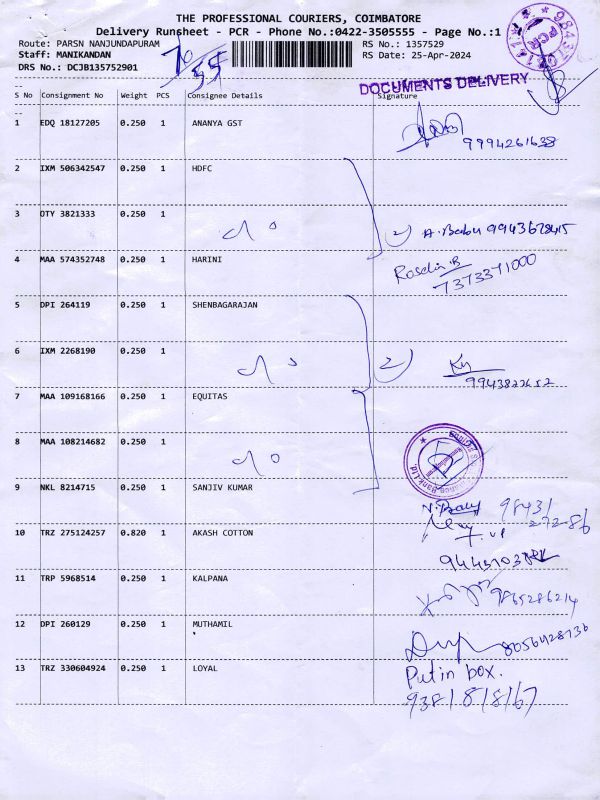 THE PROFESSIONAL COURIERS, COIMBATORE
Delivery Runsheet - PCR - Phone No.:0422-3505555 - Page No.:1
Route: PARSN NANJUNDAPURAM RS No.: 1357529
Staff: MANIKANDAN RS Date: 25-Apr-2024
DRS No.: DCJB135752901
DOCUMENTS DELIVERY
PCR
S No Consignment No Weight PCS Consignee Details Signature
1 EDQ 18127205 0.250 1 ANANYA GST
9994261638
2 IXM 506342547 0.250 1 HDFC
3 OTY 3821333 0.250 1
2 A. Babu 9943678415
4 MAA 574352748 0.250 1 HARINI
7373371000
5 DPI 264119 0.250 1 SHENBAGARAJAN
6 IXM 2268190 0.250 1
2
7 MAA 109168166 0.250 1 EQUITAS
8 MAA 108214682 0.250 1
9 NKL 8214715 0.250 1 SANJIV KUMAR
98431
272-86
10 TRZ 275124257 0.820 1 AKASH COTTON
11 TRP 5968514 0.250 1 KALPANA
9865286214
12 DPI 260129 0.250 1 MUTHAMIL
8056428136
13 TRZ 330604924 0.250 1 LOYAL
Put in box.
9381818167